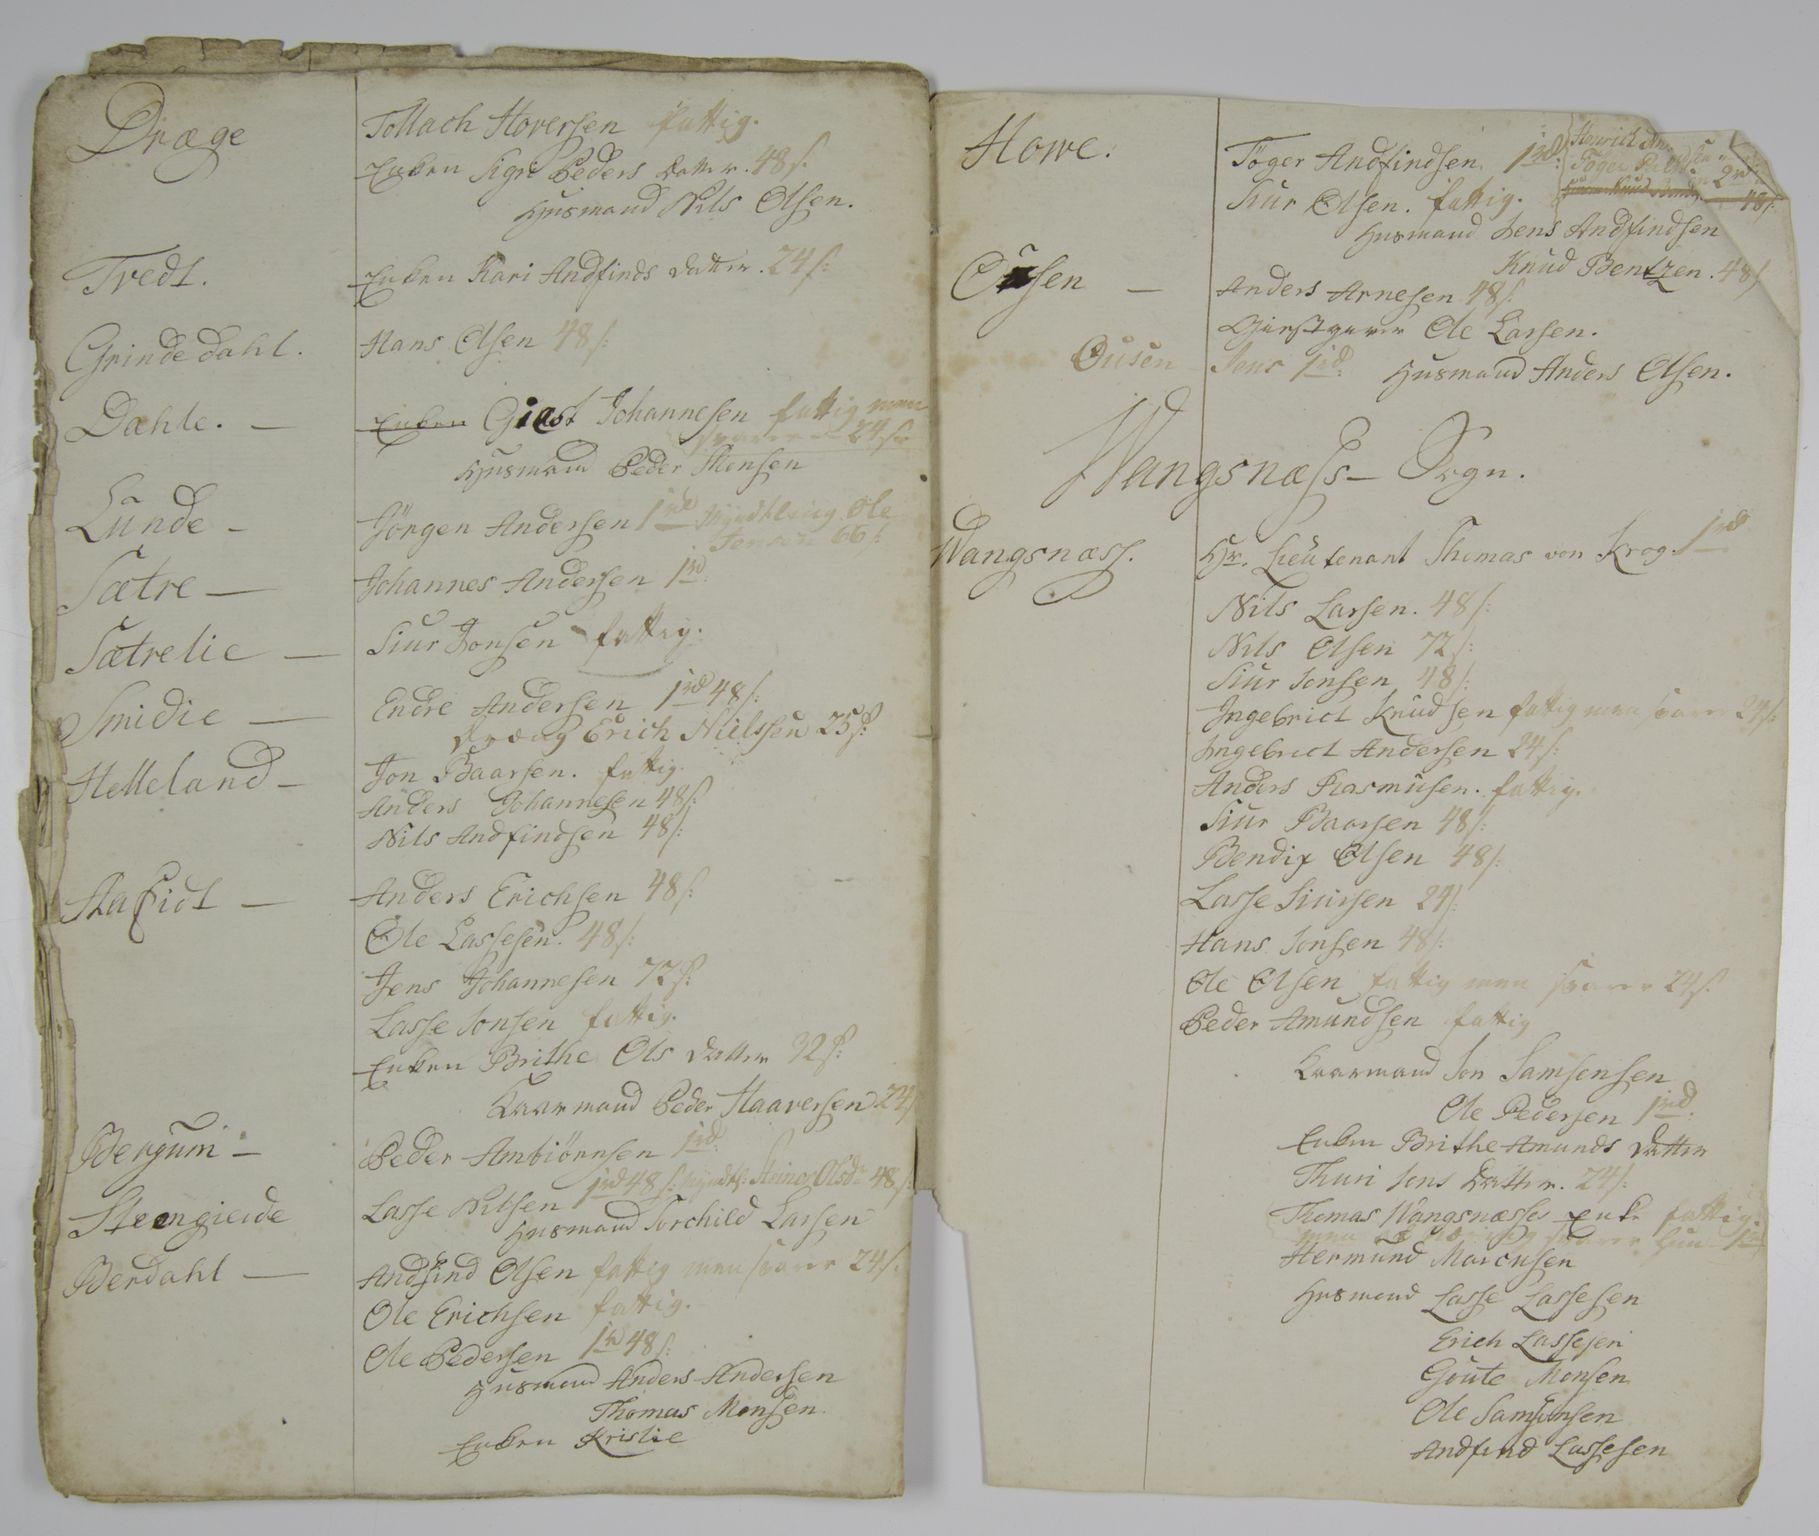 Dræge
Tollach Horersen fattig.
Enken Sigri Peders datter. 48 s.
Husmand Nils Olsen.
Tvedt.
Enken Kari Andfinds datter. 24 s:
Grindedahl.
Hans Olsen 48 s:
Dæhle. —
Enken Giest Johannesen fattig men
svarer 24 s
Husmand Peder Monsen
Lunde —
Jörgen Andersen 1 rd Myndtling Ole
Jensen 66 s:
Sætre —
Johannes Andersen 1 rd.
Sætrelie —
Siur Jonsen fattig.
Smidie —
Endre Andersen 1 rd 48 s:
dreng Erich Nielssen 25 s:
Helleland —
Jon Baarsen. fattig.
Anders Johannesen 48 s:
Nils Andfindsen 48 s:
Stafridt —
Anders Erichsen 48 s:
Ole Lassesen. 48 s:
Jens Johannesen 72 s:
Lasse Jonsen fattig.
Enken Brithe Ols datter 32 s:
Kaarmand Peder Haaversen 24
Bergum —
Peder Ambiörnsen 1 rd.
Steengierde
Lasse Nilsen 1 rd 48 s: Myndtl: Olsd. 48 s:
Husmand Torchild Larsen
Berdahl —
Andfind Olsen fattig men svarer 24 s:
Ole Erichsen fattig.
Ole Pedersen 1 rd 48 s:
Husmand Anders Andersen
Thomas Monsen.
Enken Kristie
Howe.
Töger Andfindsen. 1 rd: Henrich
Töger 2 rd
Siur Olsen. fattig. Knud 48 s:
Husmand Jens Andfindsen
Knud Bentzen. 48 s
Ousen —
Anders Arnesen 48 s:
Giestgiver Ole Larsen.
Ousen Jens 1 rd: Husmand Anders Olsen.
Wangsnæss — Sogn.
Wangsnæss.
Hr. Lieutenant Thomas von Krog. 1 rd
Nils Larsen. 48 s:
Nils Olsen 72 s:
Siur Jonsen 48 s:
Ingebrict Knudsen fattig men svarer 24 s:
Ingebrict Andersen 24 s:
Anders Rasmusen. fattig.
Siur Baarsen 48 s:
Bendix Olsen 48 s:
Lasse Siursen 24 s:
Hans Jonsen 48 s:
Ole Olsen fattig men svarer 24 s:
Peder Amundsen fattig
Kaarmand Jon Samsonsen
Ole Pedersen 1 rd.
Enken Brithe Amunds datter
Thuri Jens datter. 24 s:
Thomas Wangsnæsses Enke fattig.
men svarer hun 1 rd
Hermund Marcusen
Husmand Lasse Lassesen
Erich Lassesen
Goute Monsen
Ole Samsonsen
Andfind Lassesen